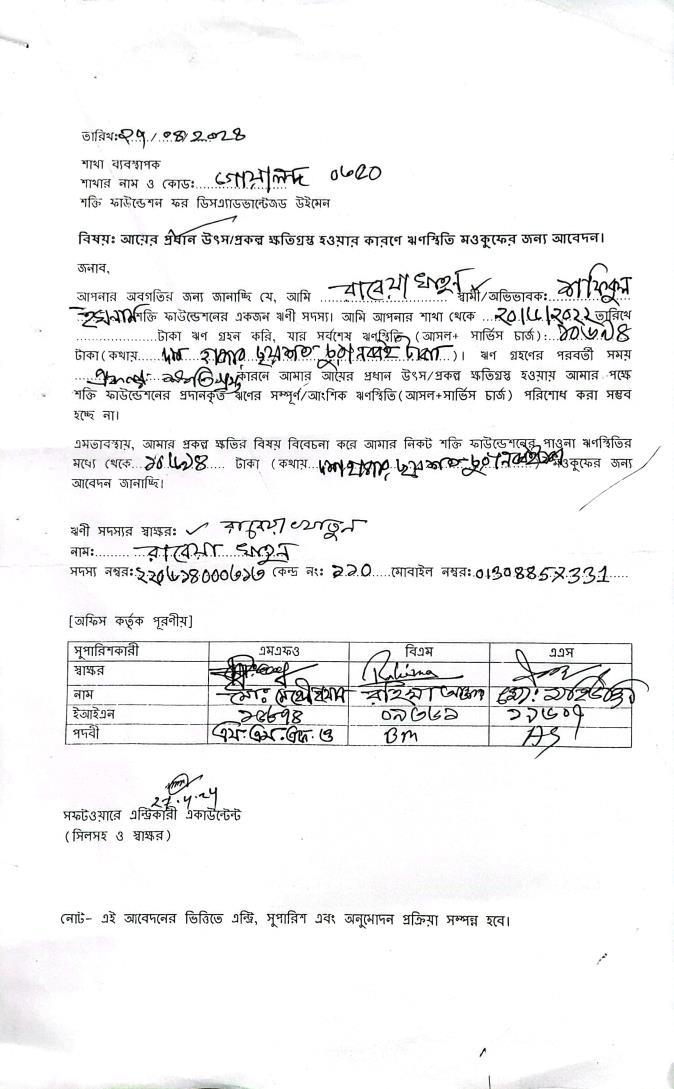 তারিখঃ ২৭/০৪/২০২৪
শাখা ব্যবস্থাপক
শাখার নাম ও কোডঃ গোয়ালন্দ
শক্তি ফাউন্ডেশন ফর ডিসএ্যাডভান্টেজড উইমেন
বিষয়ঃ আয়ের প্রধান উৎস/প্রকল্প ক্ষতিগ্রস্ত হওয়ার কারণে ঋণস্থিতি মওকুফের জন্য আবেদন।
জনাব,
আপনার অবগতির জন্য জানাচ্ছি যে, আমি রাবেয়া খাতুন স্বামী/অভিভাবকঃ
শক্তি ফাউন্ডেশনের একজন ঋণী সদস্য। আমি আপনার শাখা থেকে তারিখে
টাকা ঋণ গ্রহন করি, যার সর্বশেষ ঋণস্থিতি (আসল+ সার্ভিস চার্জ)ঃ ১০৬৯৪
টাকা (কথায় দশ হাজার ছয়শত চুরানব্বই টাকা)। ঋণ গ্রহণের পরবর্তী সময়
কারনে আমার আয়ের প্রধান উৎস/প্রকল্প ক্ষতিগ্রস্ত হওয়ায় আমার পক্ষে
শক্তি ফাউন্ডেশনের প্রদানকৃত ঋণের সম্পূর্ণ/আংশিক ঋণস্থিতি(আসল+সার্ভিস চার্জ) পরিশোধ করা সম্ভব
হচ্ছে না।
এমতাবস্থায়, আমার প্রকল্প ক্ষতির বিষয় বিবেচনা করে আমার নিকট শক্তি ফাউন্ডেশনের পাওনা ঋণস্থিতির
মধ্যে থেকে ১০৬৯৪ টাকা (কথায় মওকুফের জন্য
আবেদন জানাচ্ছি।
ঋণী সদস্যর স্বাক্ষরঃ রাবেয়া খাতুন
নামঃ রাবেয়া খাতুন
সদস্য নম্বরঃ কেন্দ্র নংঃ ১১০ মোবাইল নম্বরঃ
[অফিস কর্তৃক পূরণীয়]
সুপারিশকারী এমএফও বিএম এএস
স্বাক্ষর Rahima
নাম রহিমা
ইআইএন
পদবী এম.এম.এফ.ও BM AS
27.4.24
সফটওয়ারে এন্ট্রিকারী একাউন্টেন্ট
(সিলসহ ও স্বাক্ষর)
নোট- এই আবেদনের ভিত্তিতে এন্ট্রি, সুপারিশ এবং অনুমোদন প্রক্রিয়া সম্পন্ন হবে।